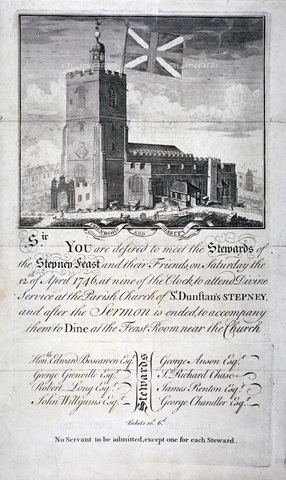 FRIENDSHIP AND CHARITY
Sir
YOU are desired to meet the Stewards of
the Stepney Feast and their Friends, on Saturday the
12th of April 1746, at nene of the Clock, to attend Divine
Service at the Parish Church of St. Dunstan's STEPNEY,
and after the Sermon is ended, to accompany
them to Dine at the Feast Room near the Church
Honble Edward Boscawen Esqr.
George Grenville Esqr.
Robert Long Esqr.
John Willyams Esqr.
Stewards
George Anson Esqr.
Sr. Richard Chase
James Renton Esqr.
George Chandler Esqr.
Tickets 10s. 6d.
No Servant to be admitted, except one for each Steward.